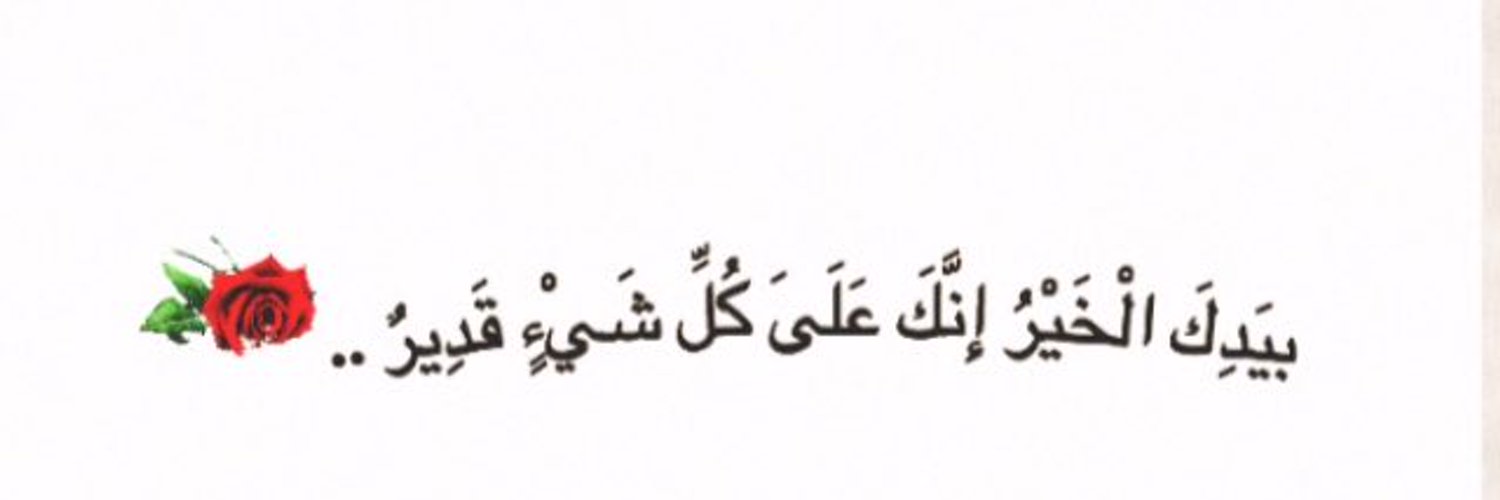 بيَدِكَ الْخَيْرُ إِنَّكَ عَلَىَ كُلِّ شَيْءٍ قَدِيرٌ ..